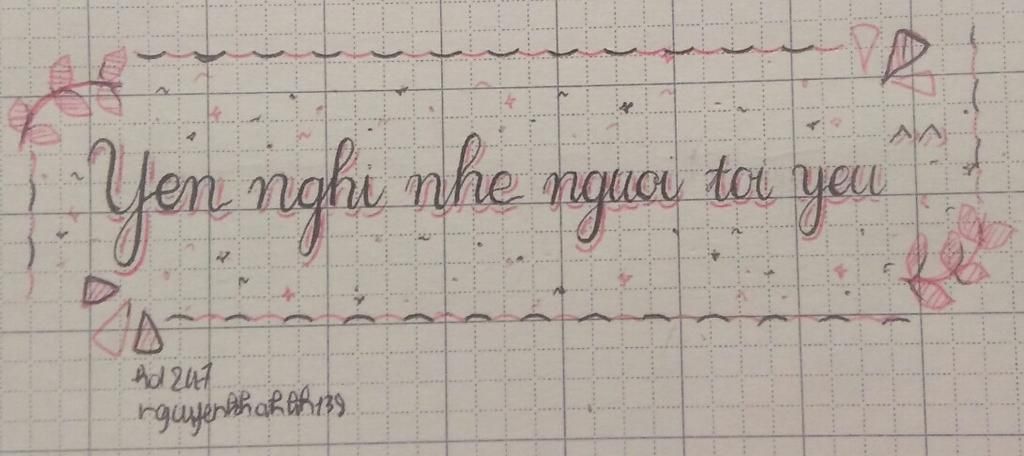 Yen nghi nhe nguoi toi yeu
^^
hd 247